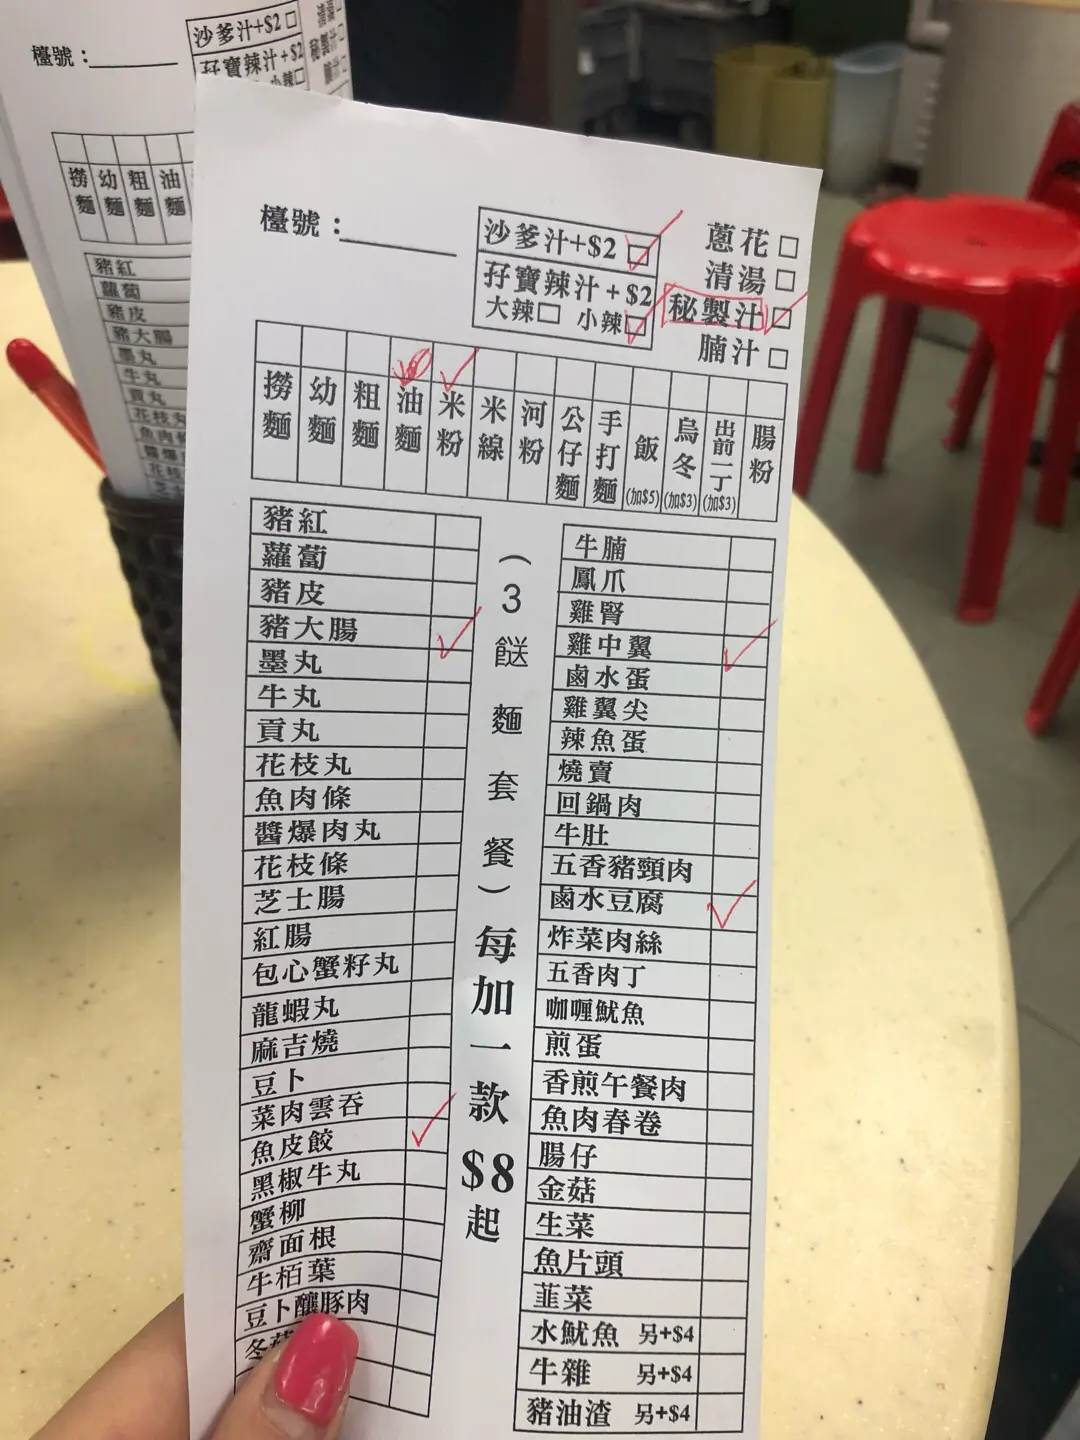 檯號：
沙爹汁+$2
孖寶辣汁+$2
小辣
清湯
秘製汁
腩汁
撈麵
幼麵
粗麵
油麵
豬紅
蘿蔔
豬皮
豬大腸
墨丸
牛丸
貢丸
花枝丸
魚肉條
檯號：
沙爹汁+$2
孖寶辣汁+$2
大辣 小辣
蔥花
清湯
秘製汁
腩汁
撈麵
幼麵
粗麵
油麵
米粉
米線
河粉
公仔麵
手打麵
飯(加$5)
烏冬(加$3)
出前一丁(加$3)
腸粉
豬紅
蘿蔔
豬皮
豬大腸
墨丸
牛丸
貢丸
花枝丸
魚肉條
醬爆肉丸
花枝條
芝士腸
紅腸
包心蟹籽丸
龍蝦丸
麻吉燒
豆卜
菜肉雲吞
魚皮餃
黑椒牛丸
蟹柳
齋面根
牛栢葉
豆卜釀豚肉
冬
（3餸麵套餐）每加一款$8起
牛腩
鳳爪
雞腎
雞中翼
鹵水蛋
雞翼尖
辣魚蛋
燒賣
回鍋肉
牛肚
五香豬頸肉
鹵水豆腐
炸菜肉絲
五香肉丁
咖喱魷魚
煎蛋
香煎午餐肉
魚肉春卷
腸仔
金菇
生菜
魚片頭
韮菜
水魷魚 另+$4
牛雜 另+$4
豬油渣 另+$4